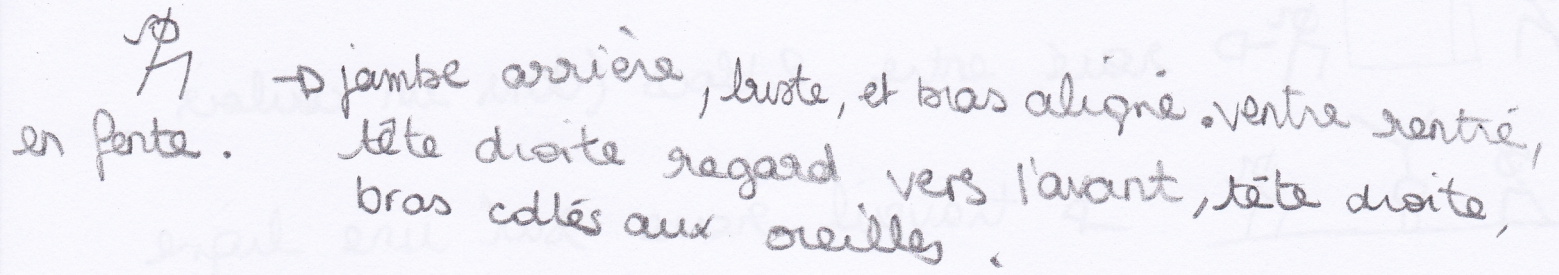 → jambe arrière, buste, et bras aligné. ventre rentré,
en fente. tête droite regard vers l'avant, tête droite,
bras collés aux oreilles.